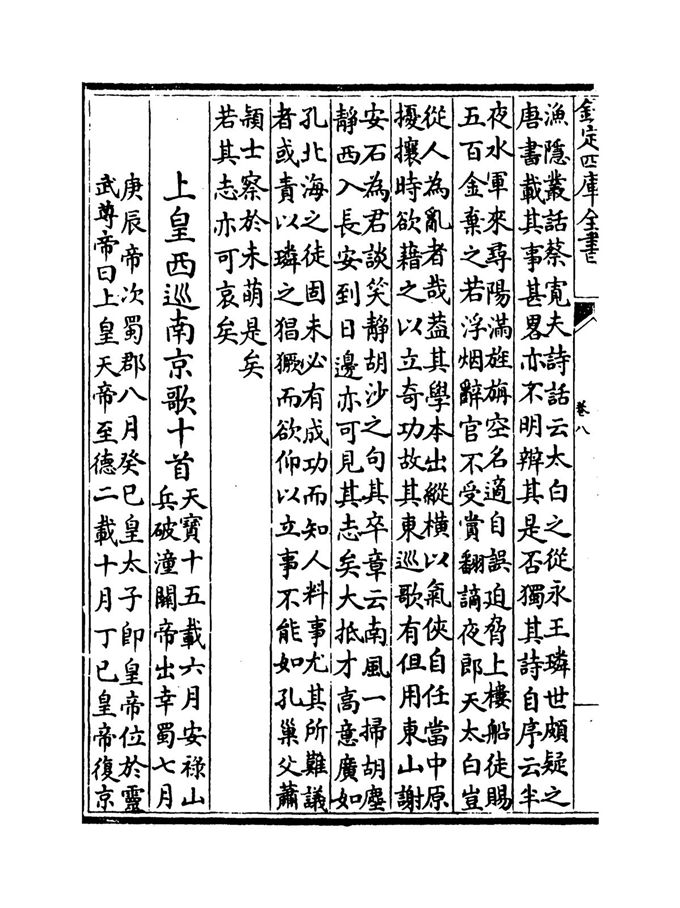 欽定四庫全書
卷八
漁隱叢話蔡寛夫詩話云太白之從永王璘世頗疑之
唐書載其事甚畧亦不明辨其是否獨其詩自序云半
夜水軍來尋陽滿旌旃空名適自誤迫脅上樓船徒賜
五百金棄之若浮烟辭官不受賞翻謫夜郎天太白豈
從人為亂者哉葢其學本出縱横以氣俠自任當中原
擾攘時欲藉之以立奇功故其東巡歌有但用東山謝
安石為君談笑静胡沙之句其卒章云南風一掃胡塵
静西入長安到日邊亦可見其志矣大抵才高意廣如
孔北海之徒固未必有成功而知人料事尤其所難議
者或責以璘之猖獗而欲仰以立事不能如孔巢父蕭
頴士察於未萌是矣
若其志亦可哀矣
上皇西巡南京歌十首
天寶十五載六月安禄山
兵破潼關帝出幸蜀七月
庚辰帝次蜀郡八月癸巳皇太子即皇帝位於靈
武尊帝曰上皇天帝至德二載十月丁巳皇帝復京